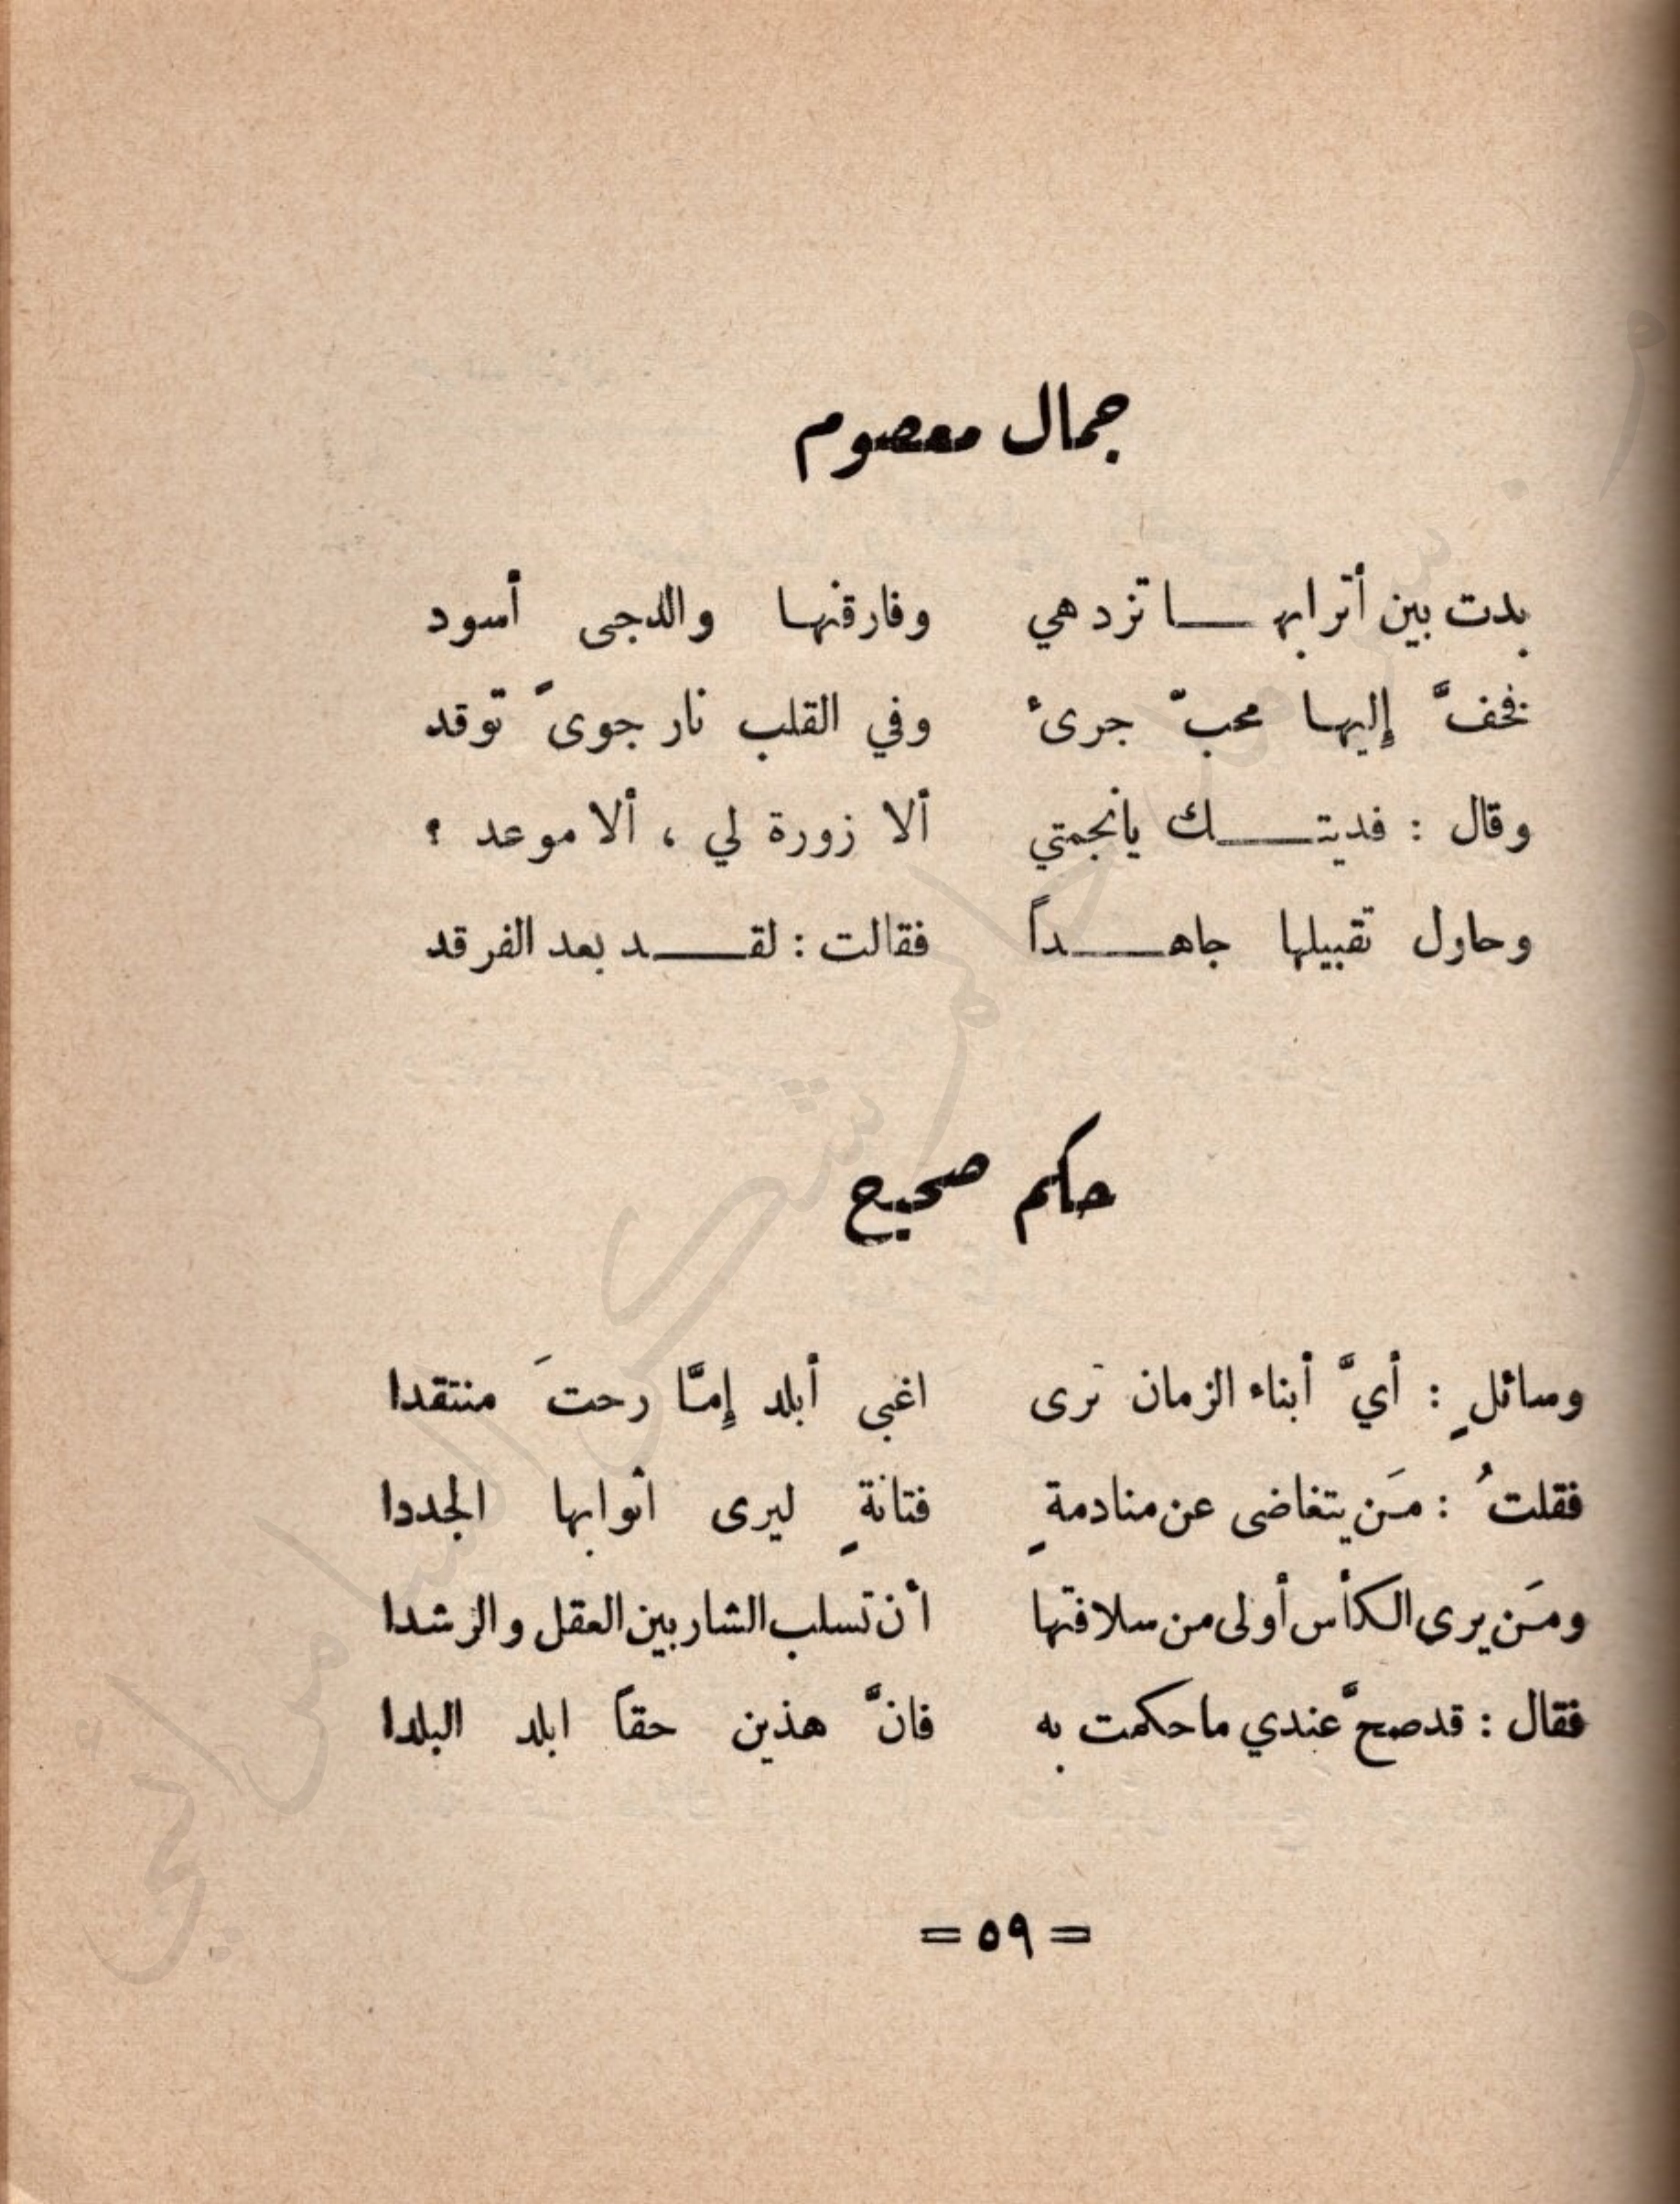 جمال معصوم
بدت بين أترابهـا تزدهي وفارقنهـا والدجى أسود
فخفَّ إليهـا محبّ جرىء وفي القلب نار جوىً توقد
وقال : فديتـك يانجمتي ألا زورة لي ، ألا موعد ؟
وحاول تقبيلها جاهـداً فقالت : لقـد بعد الفرقد
حكم صحيح
وسائلٍ : أيَّ أبناء الزمان ترى اغبى أبلد إمّا رحتَ منتقدا
فقلتُ : مَن يتغاضى عن منادمةٍ فتانةٍ ليرى أثوابها الجددا
ومَن يرى الكأس أولى من سلافتها أن تسلب الشاربين العقل والرشدا
فقال : قد صحَّ عندي ما حكمت به فانَّ هذين حقاً ابلد البلدا
= ٥٩ =